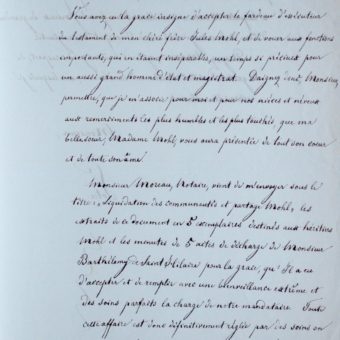 Vous avez eu la grace d'accepter le fardeau d'exécuteur
du testament de mon chère frère Jules Mohl, et de vouer aux fonctions
importantes, qui en étaient inséparables, un temps si précieux pour
un aussi grand homme d'état et magistrat. Daignez donc, Monsieur,
permettre, que je m'associe pour moi et pour nos nièces et neveux
aux remerciments les plus humbles et les plus touchés, que ma
belle soeur, Madame Mohl, vous aura présentés de tout son coeur
et de toute son âme.
Monsieur Moreau, Notaire, vient de m'envoyer sous le
titre: Liquidation des communautés et partage Mohl, les
extraits de ce document en 5 exemplaires destinés aux héritiers
Mohl et les minutes de 5 actes de décharge de Monsieur
Barthélemy de Saint Hilaire pour la grace, qu'Il a eu
d'accepter et de remplir avec une bienveillance extrême et
des soins parfaits la charge de notre mandataire. Toute
cette affaire est donc définitivement réglée par des soins on